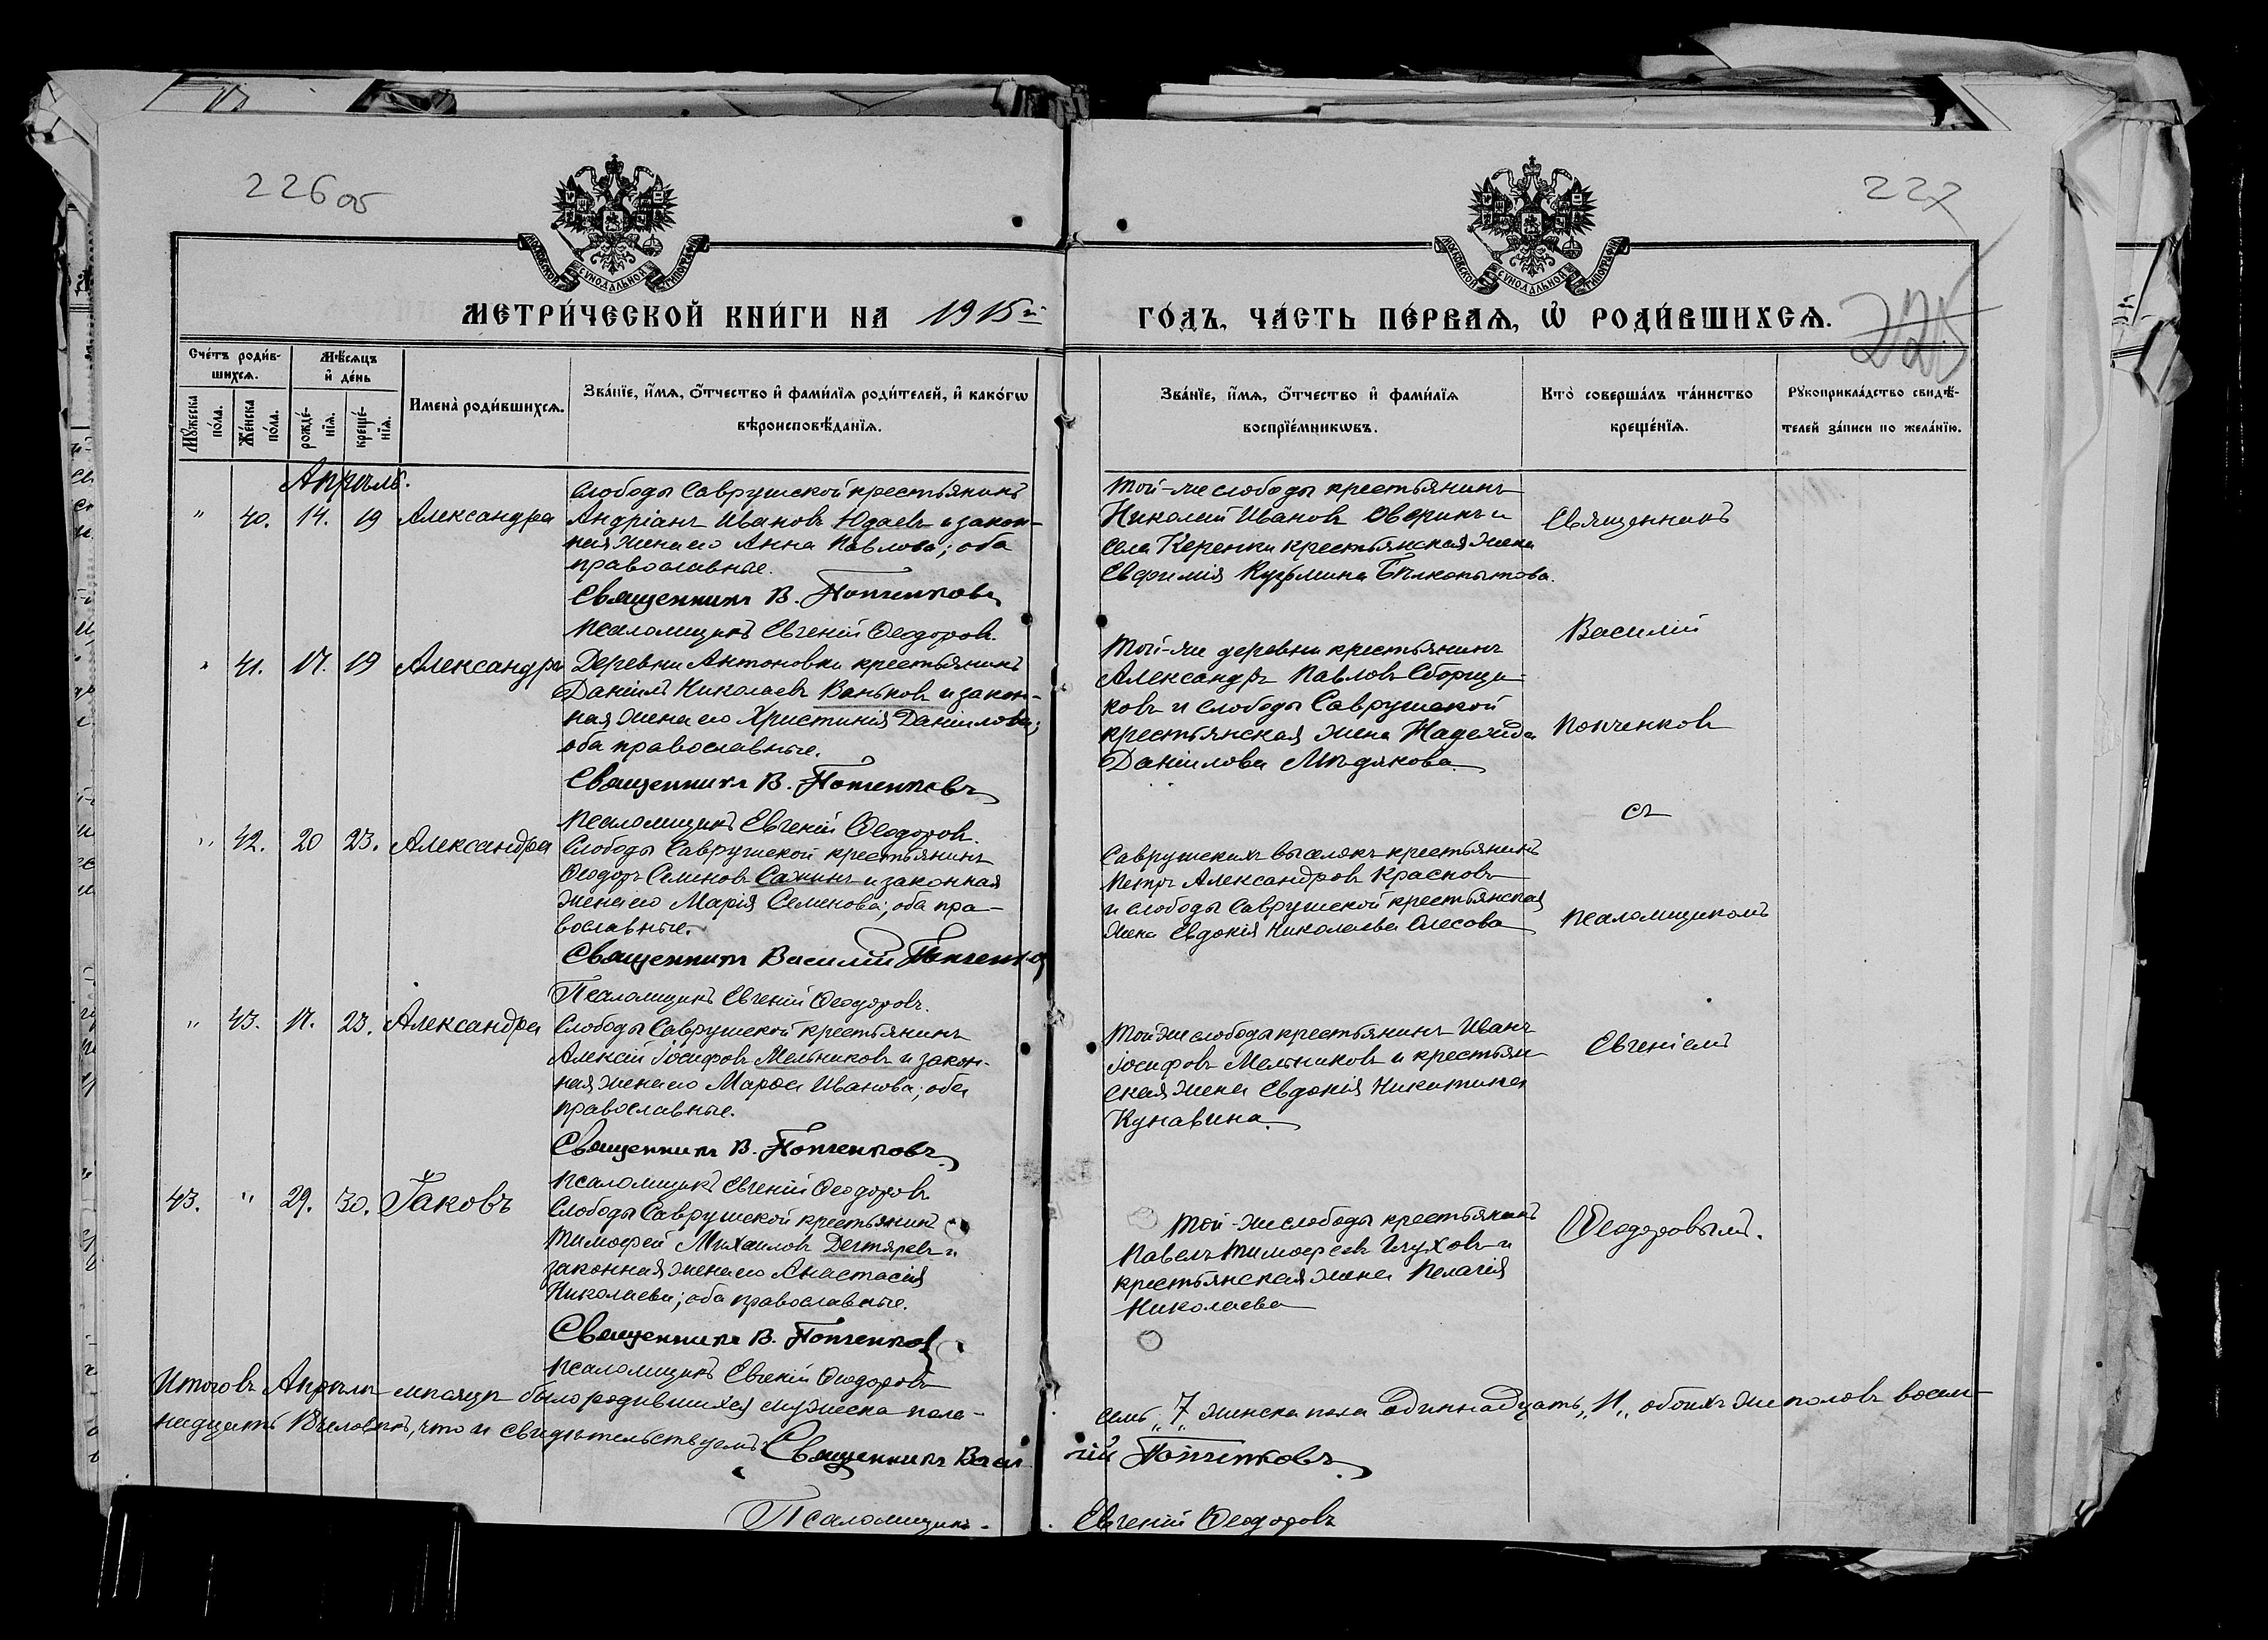 226 об
227
225
МЕТРИ́ЧЕСКОЙ КНИ́ГИ НА 1915й
ГО́ДЪ, ЧА́СТЬ ПЕ́РВАЯ, Ѡ РОДИ́ВШИХСЯ.
МОСКОВСКОЙ СУНОДАЛЬНОЙ ТИПОГРАФІИ
МОСКОВСКОЙ СУНОДАЛЬНОЙ ТИПОГРАФІИ
Сче́тъ роди́в-
шихся.
Мѣ́сяцъ
и҆ де́нь
Мꙋ́жеска
по́ла.
Же́нска
по́ла.
рожде́-
нїѧ.
креще́-
нїѧ.
Имена̀ роди́вшихсѧ.
Зва́нїе, и҆́мѧ, ѻ҆́тчество и҆ фами́лїѧ роди́телей, и҆ како́гѡ
вѣроисповѣ́данїѧ.
Зва́нїе, и҆́мѧ, ѻ҆́тчество и҆ фами́лїѧ
воспрїе́мникѡвъ.
Кто̀ соверша́лъ та́инство
креще́нїѧ.
Рꙋкоприкла́дство свидѣ́-
телей за́писи по жела́нїю.
Апрѣль.
" 40. 14. 19 Александра
Слободы Саврушской крестьянинъ
Андріанъ Ивановъ Юдаевъ и закон-
ная жена его Анна Павлова; оба
православные.
Священникъ В. Попченковъ
Псаломщикъ Евгеній Ѳеодоровъ.
Той-же слободы крестьянинъ
Николай Ивановъ Оверинъ и
села Керенки крестьянская жена
Евфимія Кузьмина Бѣлкопытова.
" 41. 17. 19 Александра
Деревни Антоновки крестьянинъ
Даніилъ Николаевъ Ваньковъ и закон-
ная жена его Христинія Даніилова;
оба православные.
Священникъ В. Попченковъ
Псаломщикъ Евгеній Ѳеодоровъ.
Той-же деревни крестьянинъ
Александръ Павловъ Сборщи-
ковъ и слободы Саврушской
крестьянская жена Надежда
Даніилова Мѣдякова.
" 42. 20 23. Александра
Слободы Саврушской крестьянинъ
Ѳеодоръ Семеновъ Сажинъ и законная
жена его Марія Семенова; оба пра-
вославные.
Священникъ Василій Попченковъ
Псаломщикъ Евгеній Ѳеодоровъ.
Саврушскихъ выселокъ крестьянинъ
Петръ Александровъ Красновъ
и слободы Саврушской крестьянская
жена Евдокія Николаева Олесова
" 43. 17. 23. Александра
Слободы Саврушской крестьянинъ
Алексій Іосифовъ Мельниковъ и закон-
ная жена его Марѳа Иванова; оба
православные.
Священникъ В. Попченковъ.
Псаломщикъ Евгеній Ѳеодоровъ
Той же слобода крестьянинъ Иванъ
Іосифовъ Мельниковъ и крестьян-
ская жена Евдокія Никитина
Кунавина.
43. " 29. 30. Іаковъ
Слободы Саврушской крестьянинъ
Тимоѳей Михаиловъ Дегтяревъ и
законная жена его Анастасія
Николаева; оба православные.
Священникъ В. Попченковъ
Псаломщикъ Евгеній Ѳеодоровъ
Той-же слободы крестьянинъ
Павелъ Тимоѳеевъ Глуховъ и
крестьянская жена Пелагія
Николаева
Священникъ
Василій
Попченковъ
съ
псаломщикомъ
Евгеніемъ
Ѳеодоровымъ.
Итого въ Апрѣлѣ мѣсяцѣ было родившихся мужеска пола-
семь „7 женска пола одиннадцать „11„ обоихъ же половъ восем-
надцать 18 человѣкъ, что и свидѣтельствуемъ: Священникъ Васи
лій Попченковъ.
Псаломщикъ.
Евгеній Ѳеодоровъ